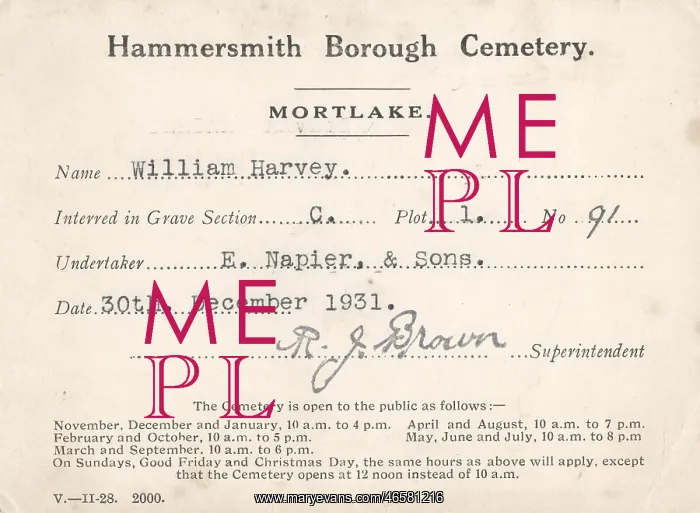 Hammersmith Borough Cemetery.
MORTLAKE.
Name ... William Harvey.
Interred in Grave Section ... C. Plot ... 1. No ... 91
Undertaker ... E. Napier, & Sons.
Date 30th. December 1931.
R. J. Brown ... Superintendent
The Cemetery is open to the public as follows:—
November, December and January, 10 a.m. to 4 p.m. April and August, 10 a.m. to 7 p.m.
February and October, 10 a.m. to 5 p.m. May, June and July, 10 a.m. to 8 p.m
March and September. 10 a.m. to 6 p.m.
On Sundays, Good Friday and Christmas Day, the same hours as above will apply, except
that the Cemetery opens at 12 noon instead of 10 a.m.
V.—II-28. 2000.
ME
PL
ME
PL
www.maryevans.com/46581216